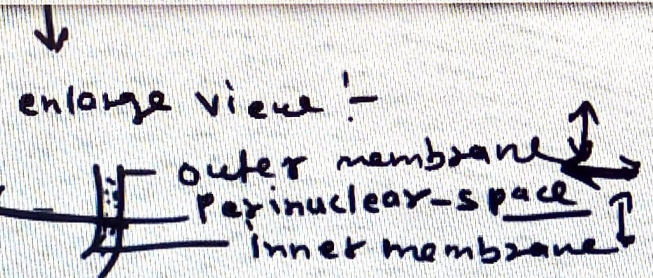 enlarge view :-
outer membrane
Perinuclear-space
inner membrane